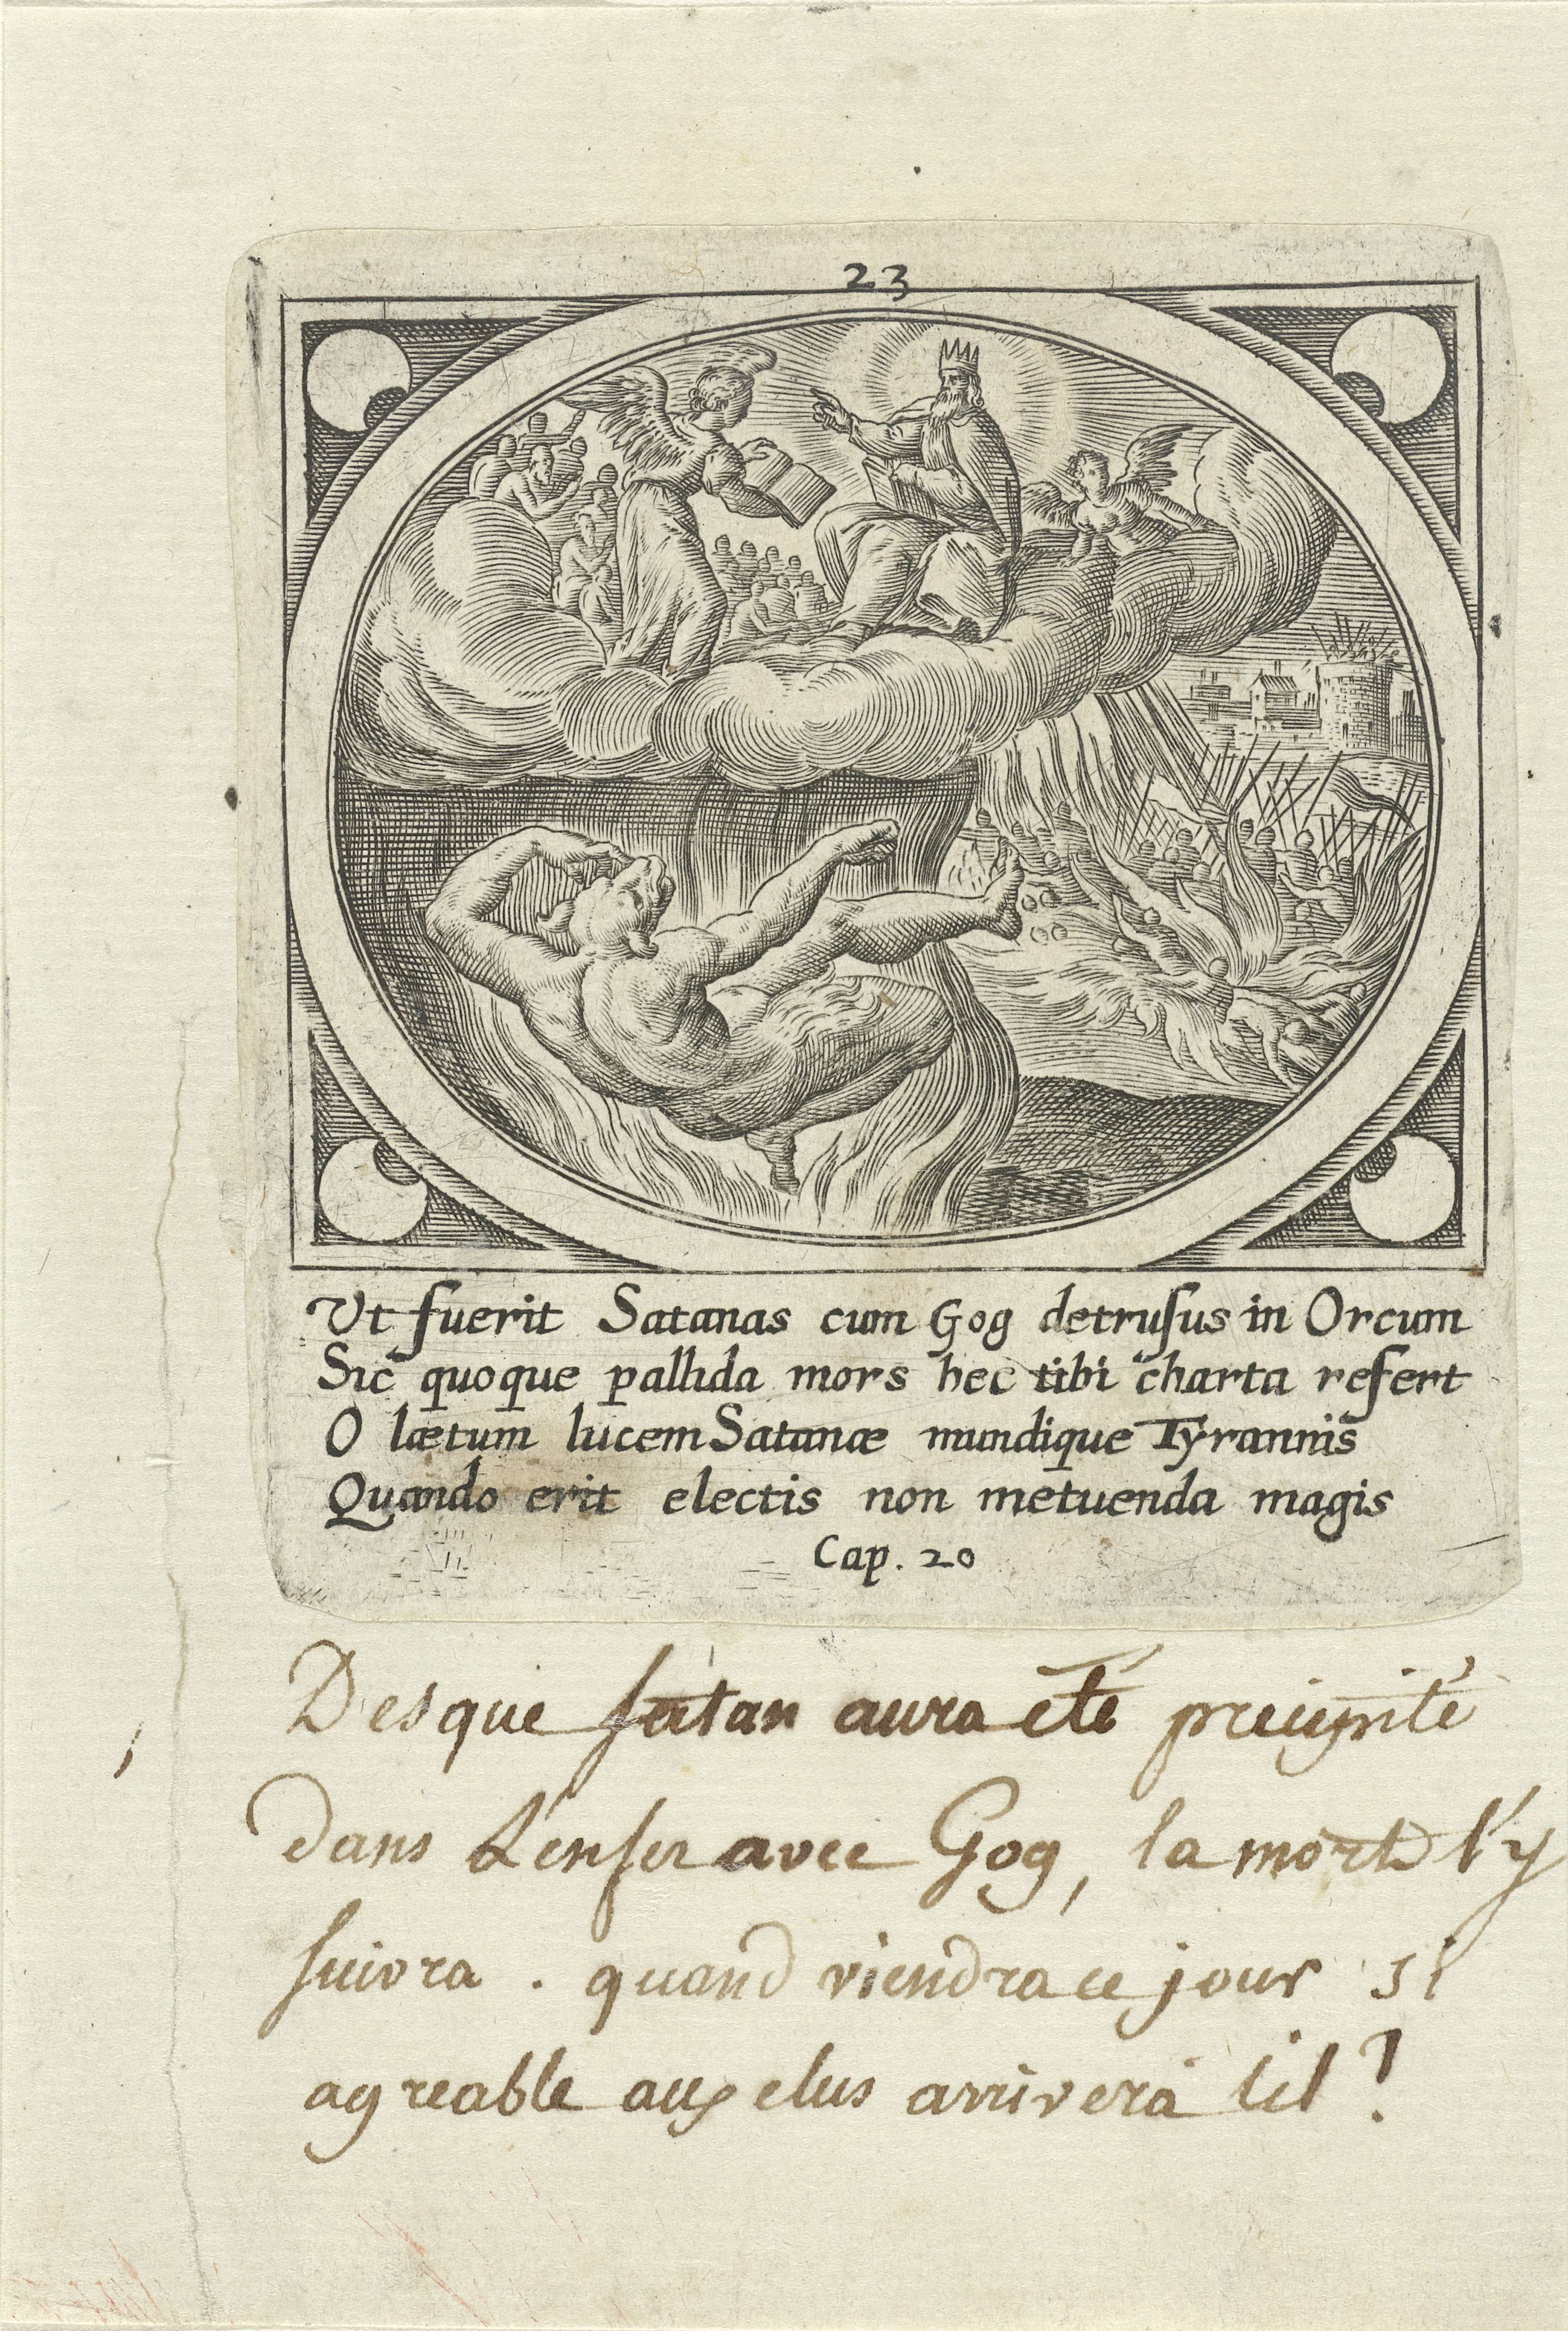 23
Ut fuerit Satanas cum Gog detrusus in Orcum
Sic quoque pallida mors hec tibi charta refert
O lætum lucem Satanæ mundique Tyrannis
Quando erit electis non metuenda magis
Cap. 20
Desque satan aura eté precipité
dans L'enfer avec Gog, la mort l'y
suivra . quand viendra ce jour si
agreable aux elus arrivera til ?